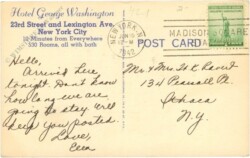 Hotel George Washington
23rd Street and Lexington Ave.
New York City
10 Minutes from Everywhere
530 Rooms, all with bath
POST CARD
NEW YORK, N.Y.
1942
MADISON SQUARE
Hello,
Arrived here
tonight. Don't know
how long we are
going to stay. Will
keep you posted.
Love,
Mr & Mrs
134
Ithaca
N.Y.